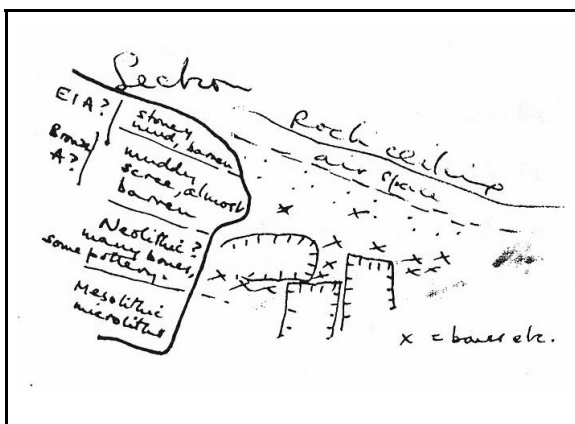 Section
EIA?
Bronze
A?
stoney
mud, barren
muddy
scree, almost
barren
Neolithic?
many bones,
some pottery.
Mesolithic
microliths
Rock ceiling
air space
x = bones etc.